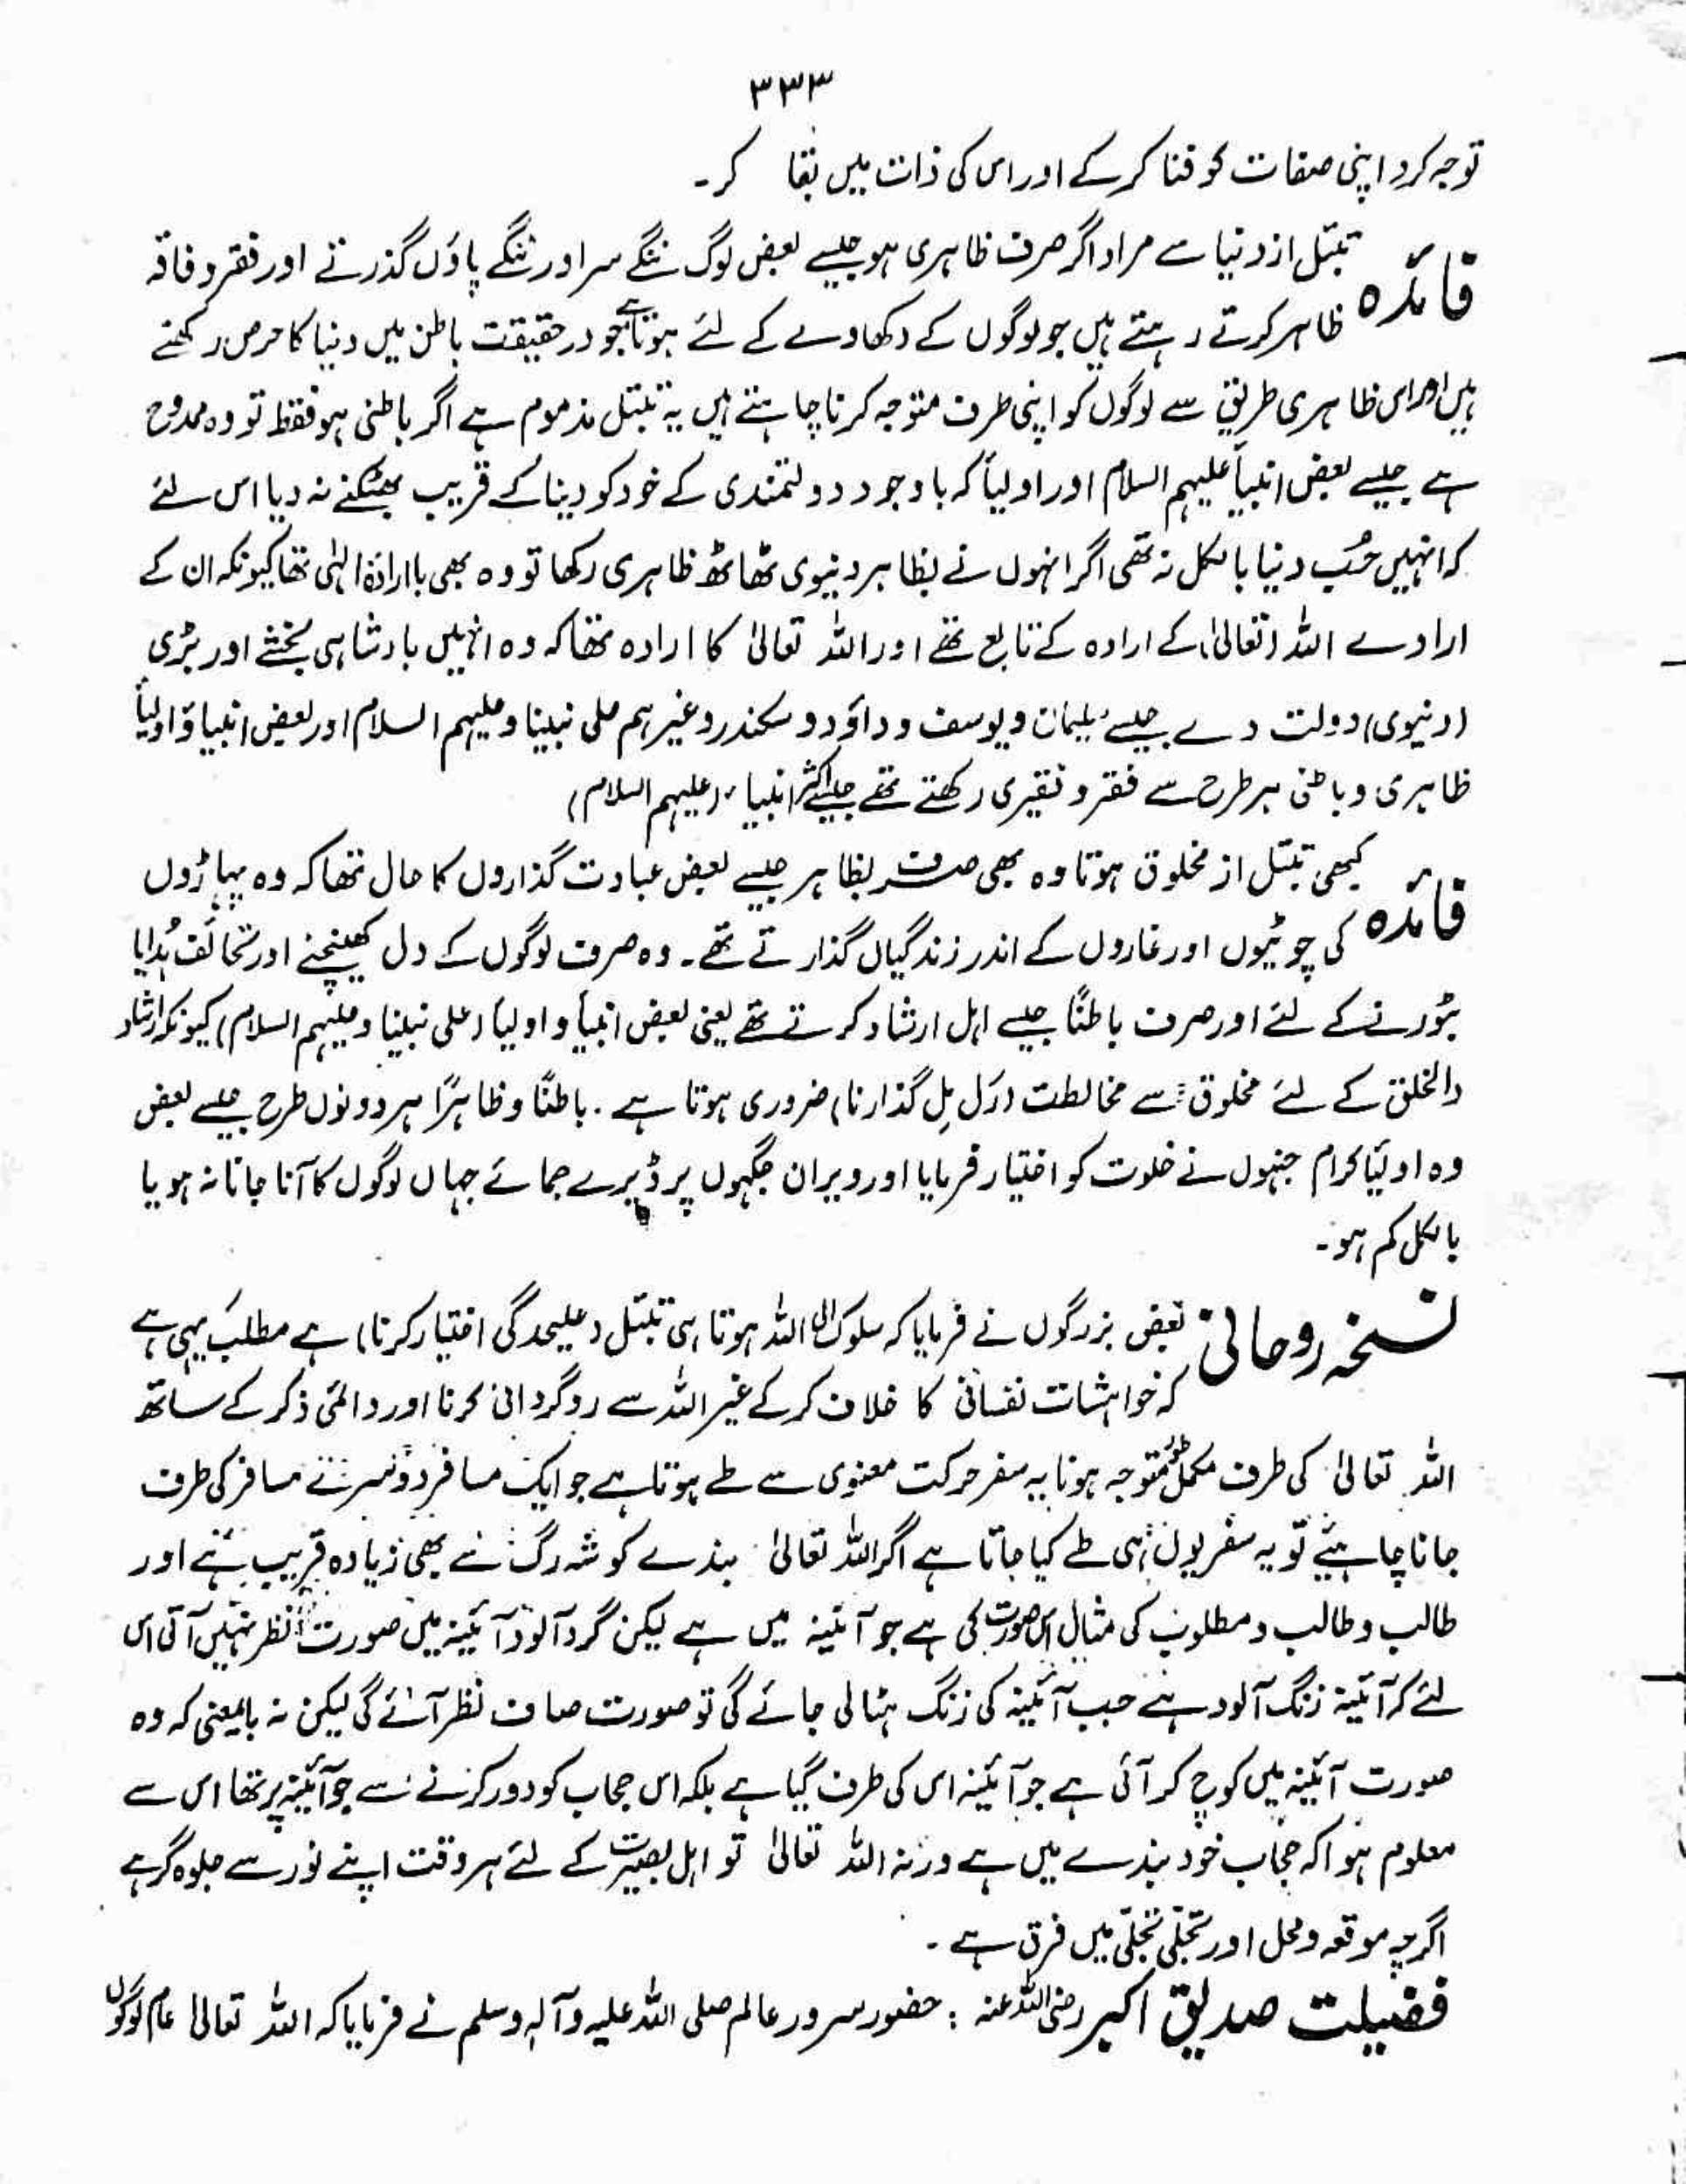 ۳۳۳
توجہ کرو اپنی صفات کو فنا کرکے اور اس کی ذات میں بقا کر۔
فائدہ تبتّل از دنیا سے مراد اگر صرف ظاہری ہو جیسے بعض لوگ ننگے سر اور ننگے پاؤں گذرتے اور فقر و فاقہ
ظاہر کرتے رہتے ہیں جو لوگوں کے دکھاوے کے لئے ہوتا ہے جو درحقیقت باطن میں دنیا کا حرص رکھتے
ہیں اور اس ظاہری طریق سے لوگوں کو اپنی طرف متوجہ کرنا چاہتے ہیں یہ تبتل مذموم ہے اگر باطنی ہو فقط تو وہ ممدوح
ہے جیسے بعض انبیاؑ علیہم السلام اور اولیاؒ کہ باوجود دولتمندی کے خود کو دینا کے قریب بھٹکنے نہ دیا اس لئے
کہ انہیں حُب دنیا بالکل نہ تھی اگر انہوں نے بظاہر دنیوی ٹھاٹھ ظاہری رکھا تو وہ بھی بارادۃ الہٰی تھا کیونکہ ان کے
ارادے اللہ (تعالیٰ) کے ارادہ کے تابع تھے اور اللہ تعالیٰ کا ارادہ تھا کہ وہ انہیں بادشاہی بخشے اور بڑی
(دنیوی) دولت دے جیسے سلیمان و یوسف و داؤد و سکندر وغیرہم علی نبینا وعلیہم السلام اور بعض انبیا و اولیاؒ
ظاہری و باطنی ہر طرح سے فقر و فقیری رکھتے تھے جیسے اکثر انبیاء (علیہم السلام)
فائدہ کبھی تبتّل از مخلوق ہوتا وہ بھی صرف بظاہر جیسے بعض عبادت گذاروں کا حال تھا کہ وہ پہاڑوں
کی چوٹیوں اور غاروں کے اندر زندگیاں گذارتے تھے۔ وہ صرف لوگوں کے دل کھینچنے اور تحائف ہدایا
بٹورنے کے لئے اور صرف باطنًا جیسے اہل ارشاد کرتے تھے یعنی بعض انبیاؑ و اولیاؒ (علی نبینا وعلیہم السلام) کیونکہ ارشاد
دالخلق کے لئے مخلوق سے مخالطت (رَل مِل گذارنا) ضروری ہوتا ہے۔ باطنًا و ظاہرًا ہر دونوں طرح جیسے بعض
وہ اولیاؒ کرام جنہوں نے خلوت کو اختیار فرمایا اور ویران جگہوں پر ڈیرے جمائے جہاں لوگوں کا آنا جانا نہ ہو یا
بالکل کم ہو۔
نسخہ روحانی بعض بزرگوں نے فرمایا کہ سلوک الی اللہ ہوتا ہی تبتّل (علیحدگی اختیار کرنا) ہے مطلب یہی ہے
کہ خواہشات نفسانی کا خلاف کرکے غیر اللہ سے روگردانی کرنا اور دائمی ذکر کے ساتھ
اللہ تعالیٰ کی طرف مکمل طور متوجہ ہونا یہ سفر حرکت معنوی سے طے ہوتا ہے جو ایک مسافر دوسرے مسافر کی طرف
جانا چاہیئے تو یہ سفر یوں ہی طے کیا جاتا ہے اگر اللہ تعالیٰ بندے کو شہ رگ سے بھی زیادہ قریب ہے اور
طالب و طالب و مطلوب کی مثال اس صورت کی ہے جو آئینہ میں ہے لیکن گرد آلود آئینہ میں صورت نظر نہیں آتی اس
لئے کہ آئینہ زنگ آلود ہے جب آئینہ کی زنگ ہٹا لی جائے گی تو صورت صاف نظر آئے گی لیکن نہ بایںمعنی کہ وہ
صورت آئینہ میں کوچ کر آئی ہے جو آئینہ اس کی طرف گیا ہے بلکہ اس حجاب کو دور کرنے سے جو آئینہ پر تھا اس سے
معلوم ہوا کہ حجاب خود بندے میں ہے ورنہ اللہ تعالیٰ تو اہل بصیرت کے لئے ہر وقت اپنے نور سے جلوہ گر ہے
اگرچہ موقعہ و محل اور تجلّی تجلّی میں فرق ہے۔
فضیلت صدیق اکبر رضی اللہ عنہ : حضور سرور عالم صلی اللہ علیہ وآلہ وسلم نے فرمایا کہ اللہ تعالیٰ عام لوگوں